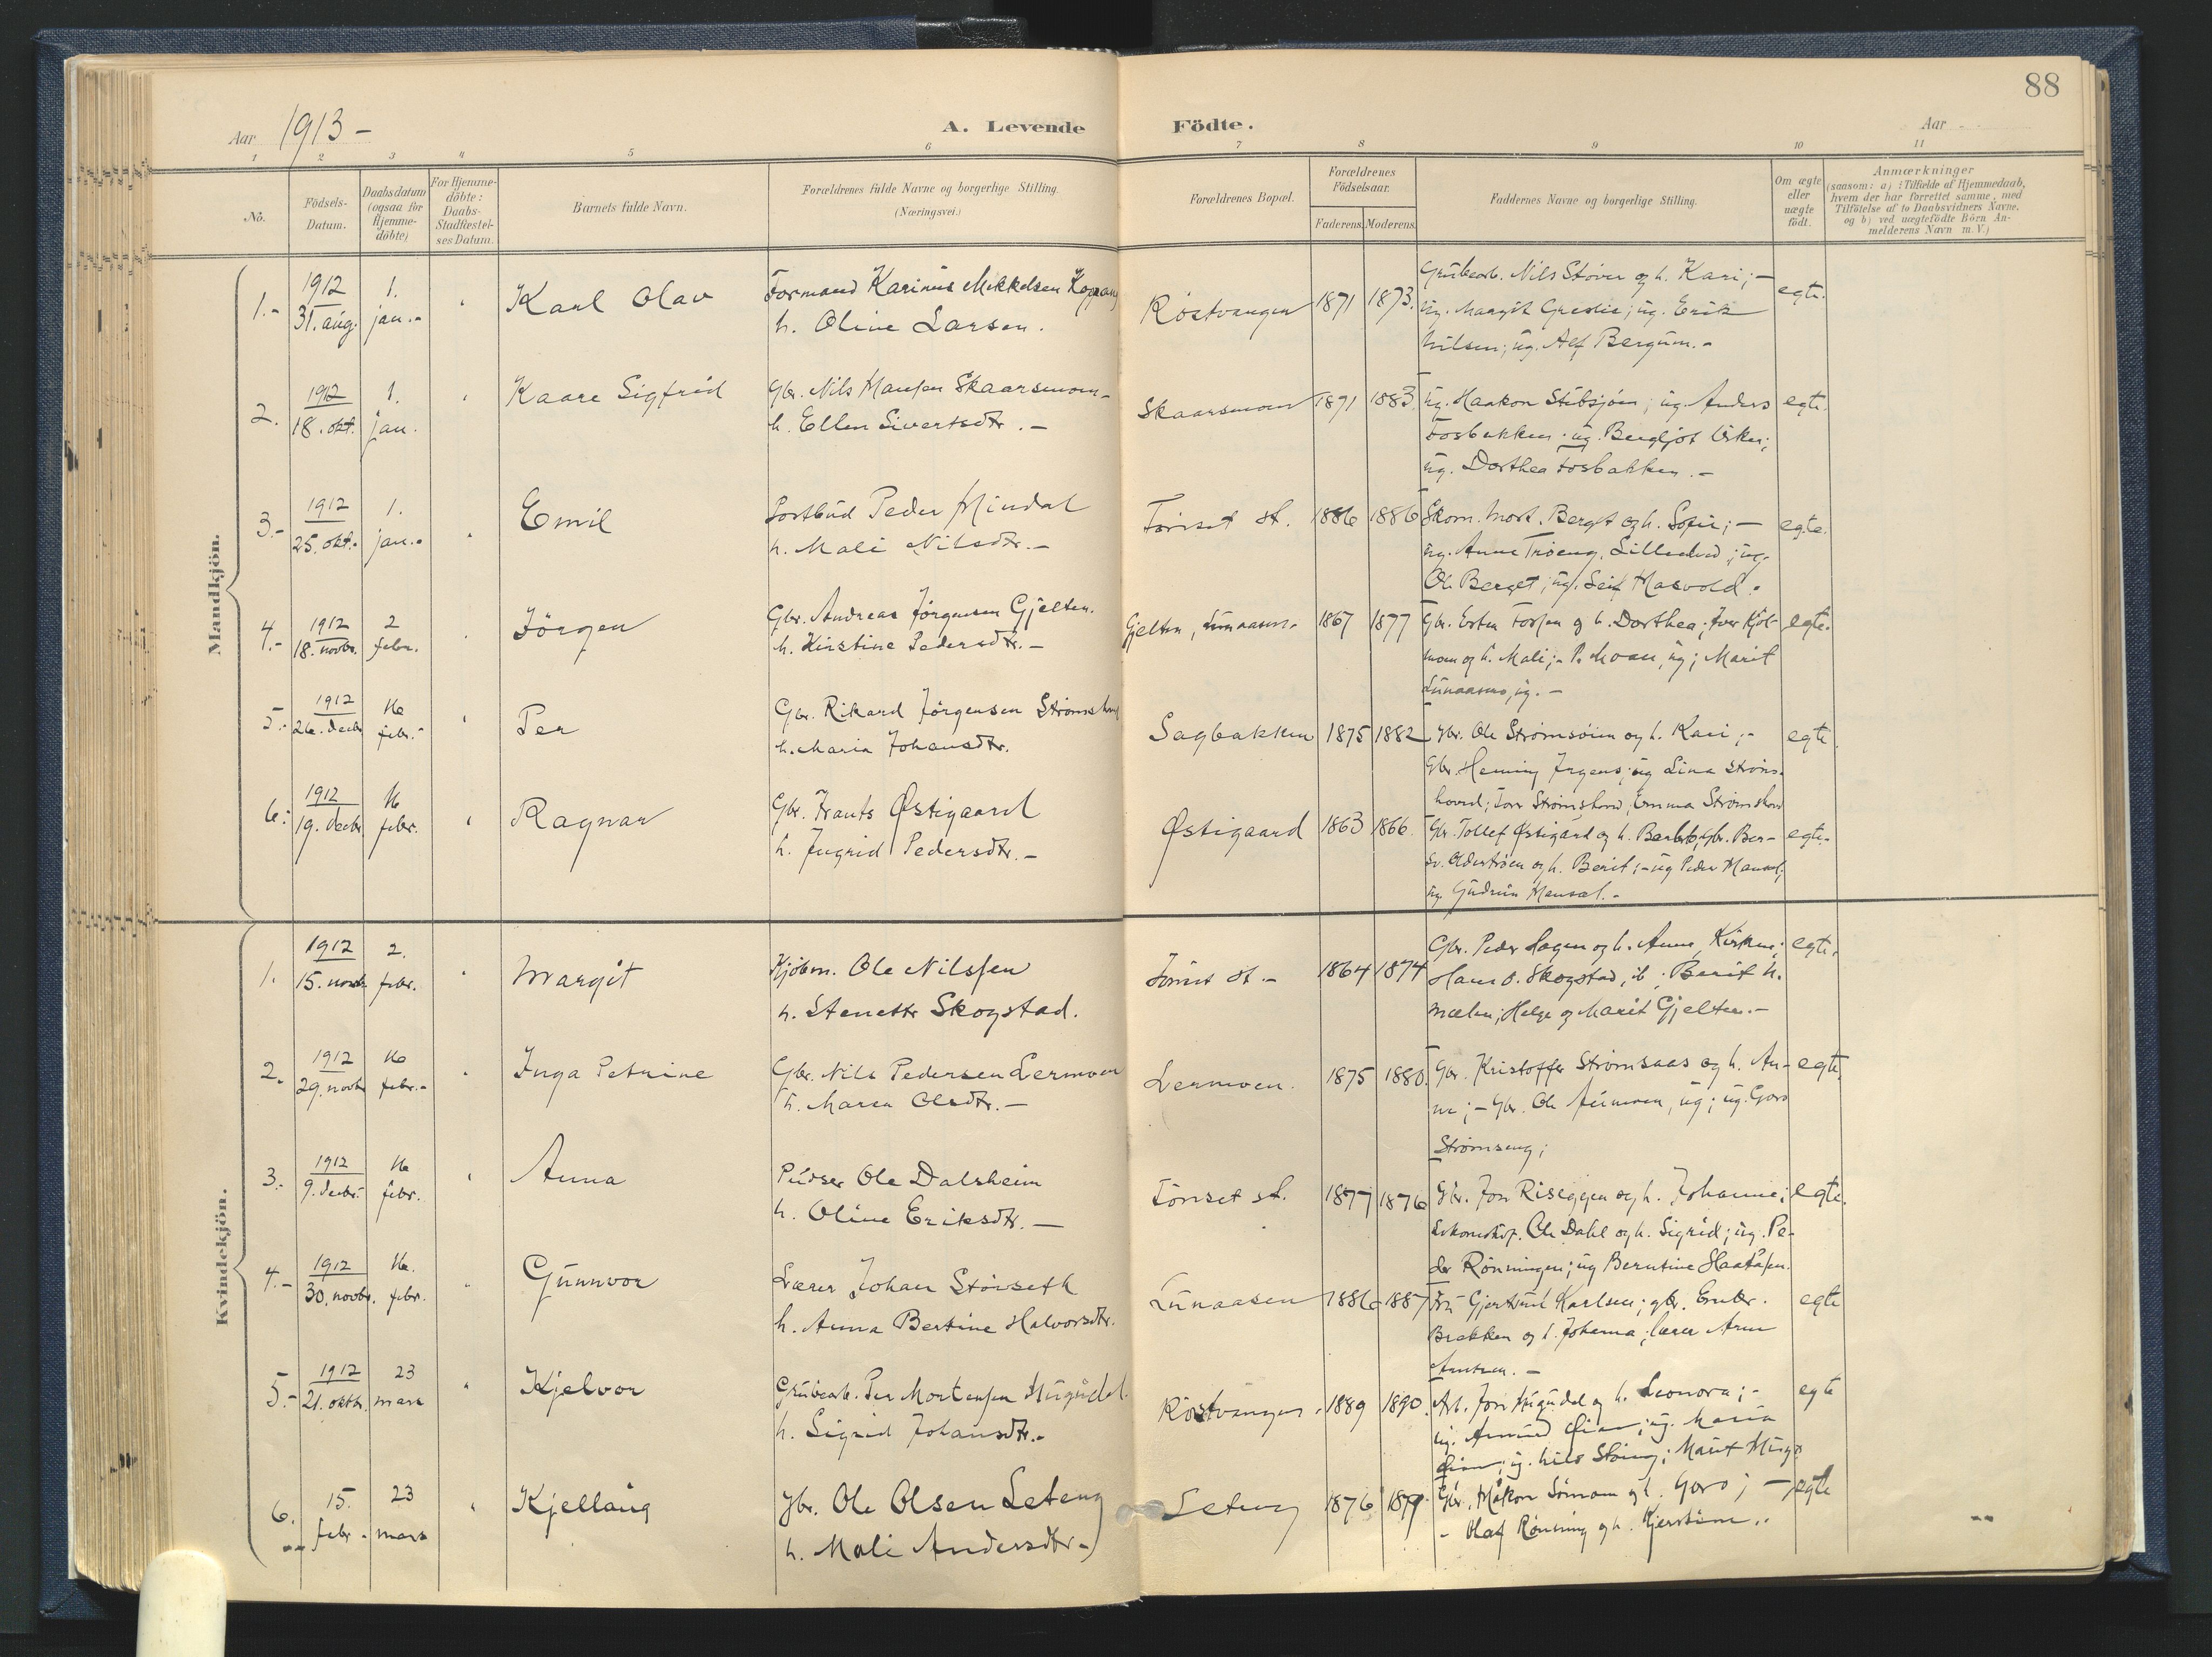 88
Aar 1913 –
A. Levende Födte.
Aar
1 2 3 4 5 6 7 8 9 10 11
No.
Födsels-
Datum.
Daabsdatum
(ogsaa for
Hjemme-
döbte)
For Hjemme-
döbte:
Daabs-
Stadfæstel-
ses Datum.
Barnets fulde Navn.
Forældrenes fulde Navne og borgerlige Stilling.
(Næringsvei.)
Forældrenes Bopæl.
Forældrenes
Födselsaar.
Faderens. Moderens.
Faddernes Navne og borgerlige Stilling.
Om ægte
eller
uægte
födt.
Anmærkninger
(saasom: a) i Tilfælde af Hjemmedaab,
hvem der har forrettet samme, med
Tilföielse af to Daabsvidners Navne.
og b) ved uægtefödte Börn An-
melderens Navn m. V.)
Mandkjön.
1.-
1912
31. aug.
1.
jan.-
Karl Olav
Formand Karinus Mikkelsen
h. Oline Larsen.
Röstvangen
1871
1873.
Grubearb. Nils Støver og h. Kari; –
ug. Margit ; ug. Erik
Nilsen; ug. Alf Bergum.-
egte.
2.
1912
18. okt.
1.
jan.
Kaare Sigfrid
Gbr. Nils Hansen Skaarsmoen-
h. Ellen Sivertsdtr. –
Skaarsmoen
1871
1883.
ug. Haakon Stubsjøen; ug. Anders
Fosbakken; ug. Bergljot
ug. Dorthea Fosbakken. –
egte.
3.-
1912
25. okt.-
1.
jan.-
Emil
Postbud Peder Mindal
h. Mali Nilsdtr. –
Tönset st.
1886
1886
Skom. Mort. Berget og h. Sofie; –
ug. Anne Trøeng, ; ug.
Ole Berget; ug. Leif Masvold.
egte.
4.-
1912
18. novbr.
2
febr.
Jörgen
Gbr. Andreas Jörgensen Gjelten.
h. Kirstine Pedersdtr. –
Gjelten, Lunaasen.
1867
1877
Gbr. Esten Fossen og h. Dorthea; Iver Kjöl-
moen og h. Mali; - P. Moan, ug; Marit
Lunaasmo, ug. –
egte.
5.-
1912
26. decbr.
16
febr.-
Per
Gbr. Rikard Jörgensen Strömshoved
h. Maria Johansdtr.
Sagbakken
1875
1882
Gbr. Ole Strömsöien og h. Kari; -
Gbr. Heming ; ug Lina Ströms-
hoved; Tore Strömshoved; Emma Strömshoved
egte.
6.-
1912
19. decbr.
16
febr.
Ragnar
Gbr. Frants Østigaard
h. Ingrid Pedersdtr. –
Østigaard
1863
1866.
Gbr. Tollef Østigård og h. ; Gbr. Ber-
sv. Oldertröen og h. Berit; - ug Peder ;
ug Gudrun Mensal. -
egte.-
Kvindekjön.
1.
1912
15. novbr.
2.
febr.
Margit
Kjöbm. Ole Nilssen
h. Skogstad.
Tönset st. -
1864
1874
Gbr. Peder Hagen og h. Anne, ;
Hans O. Skogstad, ib; Berit N.
Mælen; Helge og Marit Gjelten. –
egte.
2.
1912
29. novbr.
16
febr.-
Inga Petrine
Gbr. Nils Pedersen Lermoen
h. Maren Olsdtr. –
Lermoen.
1875
1880.
Gbr. Kristoffer Strömsaas og h. An-
ne; – Gbr. Ole , ug; ug. Goro
Strömseng;
egte.
3.
1912
9. decbr.-
16
febr.
Anna
Pudser Ole Dalsheim
h. Oline Eriksdtr. –
Tönset st.
1877
1876
Gbr. Jon Riseggen og h. Johanne;
. Ole Dahl og h. Sigrid; ug. Pe-
der Rönningen; ug Berntine .
egte.
4.-
1912
30. novbr.
16.
febr.
Gunnvor
Lærer Johan Störseth
h. Anna Bertine Halvorsdtr.
Lunaasen
1886
1887
Fru Gjertrud Karlsen; gbr. Embr.
Brekken og h. Johanna; lærer Arne
.–
egte
5.-
1912
21. oktbr.
23
mars
Kjelvor
Grubearb. Per Mortensen Hugudal.
h. Sigrid Johansdtr.-
Röstvangen.
1889
1890.
Arb. Jon Hugudal og h. Leonora; -
ug. ; ug. Maria
; ug. Nils ; Marit
egte
6.
15.
febr.
23
mars
Kjellaug
Gbr. Ole Olsen Leteng
h. Mali Andersdtr.-
Leteng
1876
1879.
Gbr. Håkon og h. Goro; –
- Olaf Rönning og h. .
egte